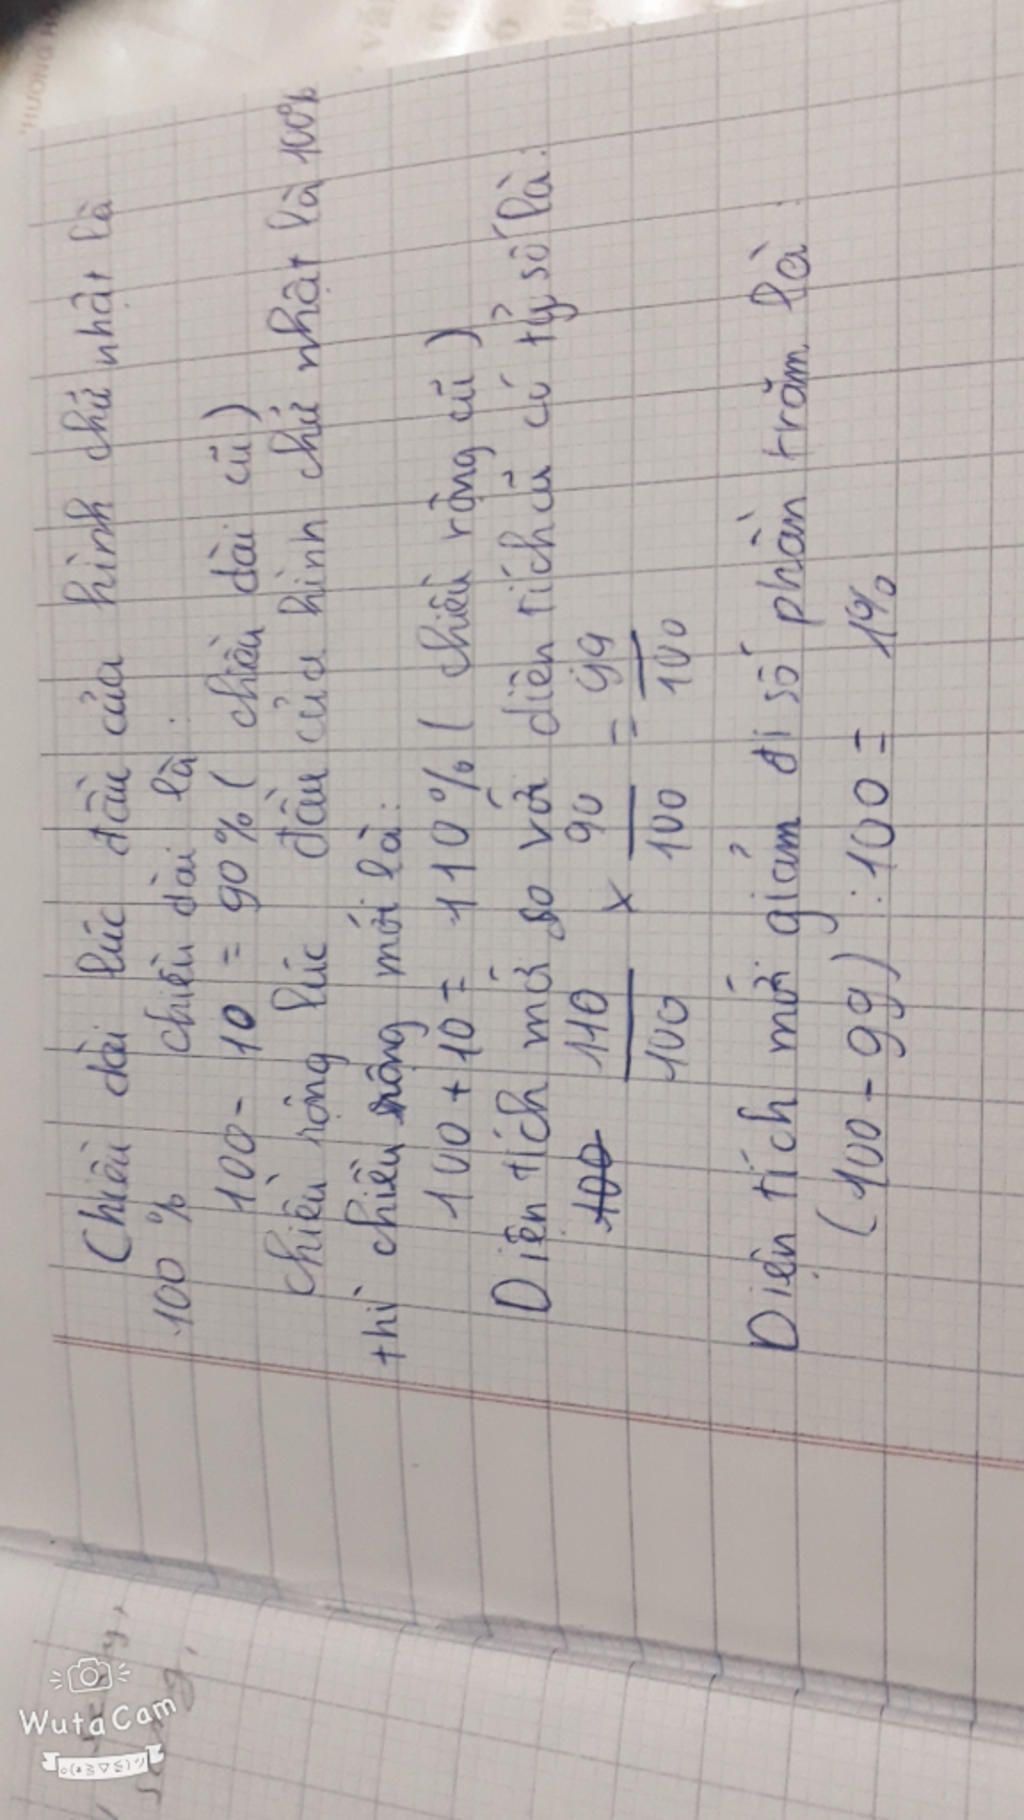 Chiều dài lúc đầu của hình chữ nhật là
100 % chiều dài là:
100 - 10 = 90 % ( chiều dài cũ )
chiều rộng lúc đầu của hình chữ nhật là 100%
thì chiều rộng mới là:
100 + 10 = 110 % ( chiều rộng cũ )
Diện tích mới so với diện tích cũ có tỷ số là:
110/100 × 90/100 = 99/100
Diện tích mới giảm đi số phần trăm là:
(100 - 99) : 100 = 1%
WutaCam